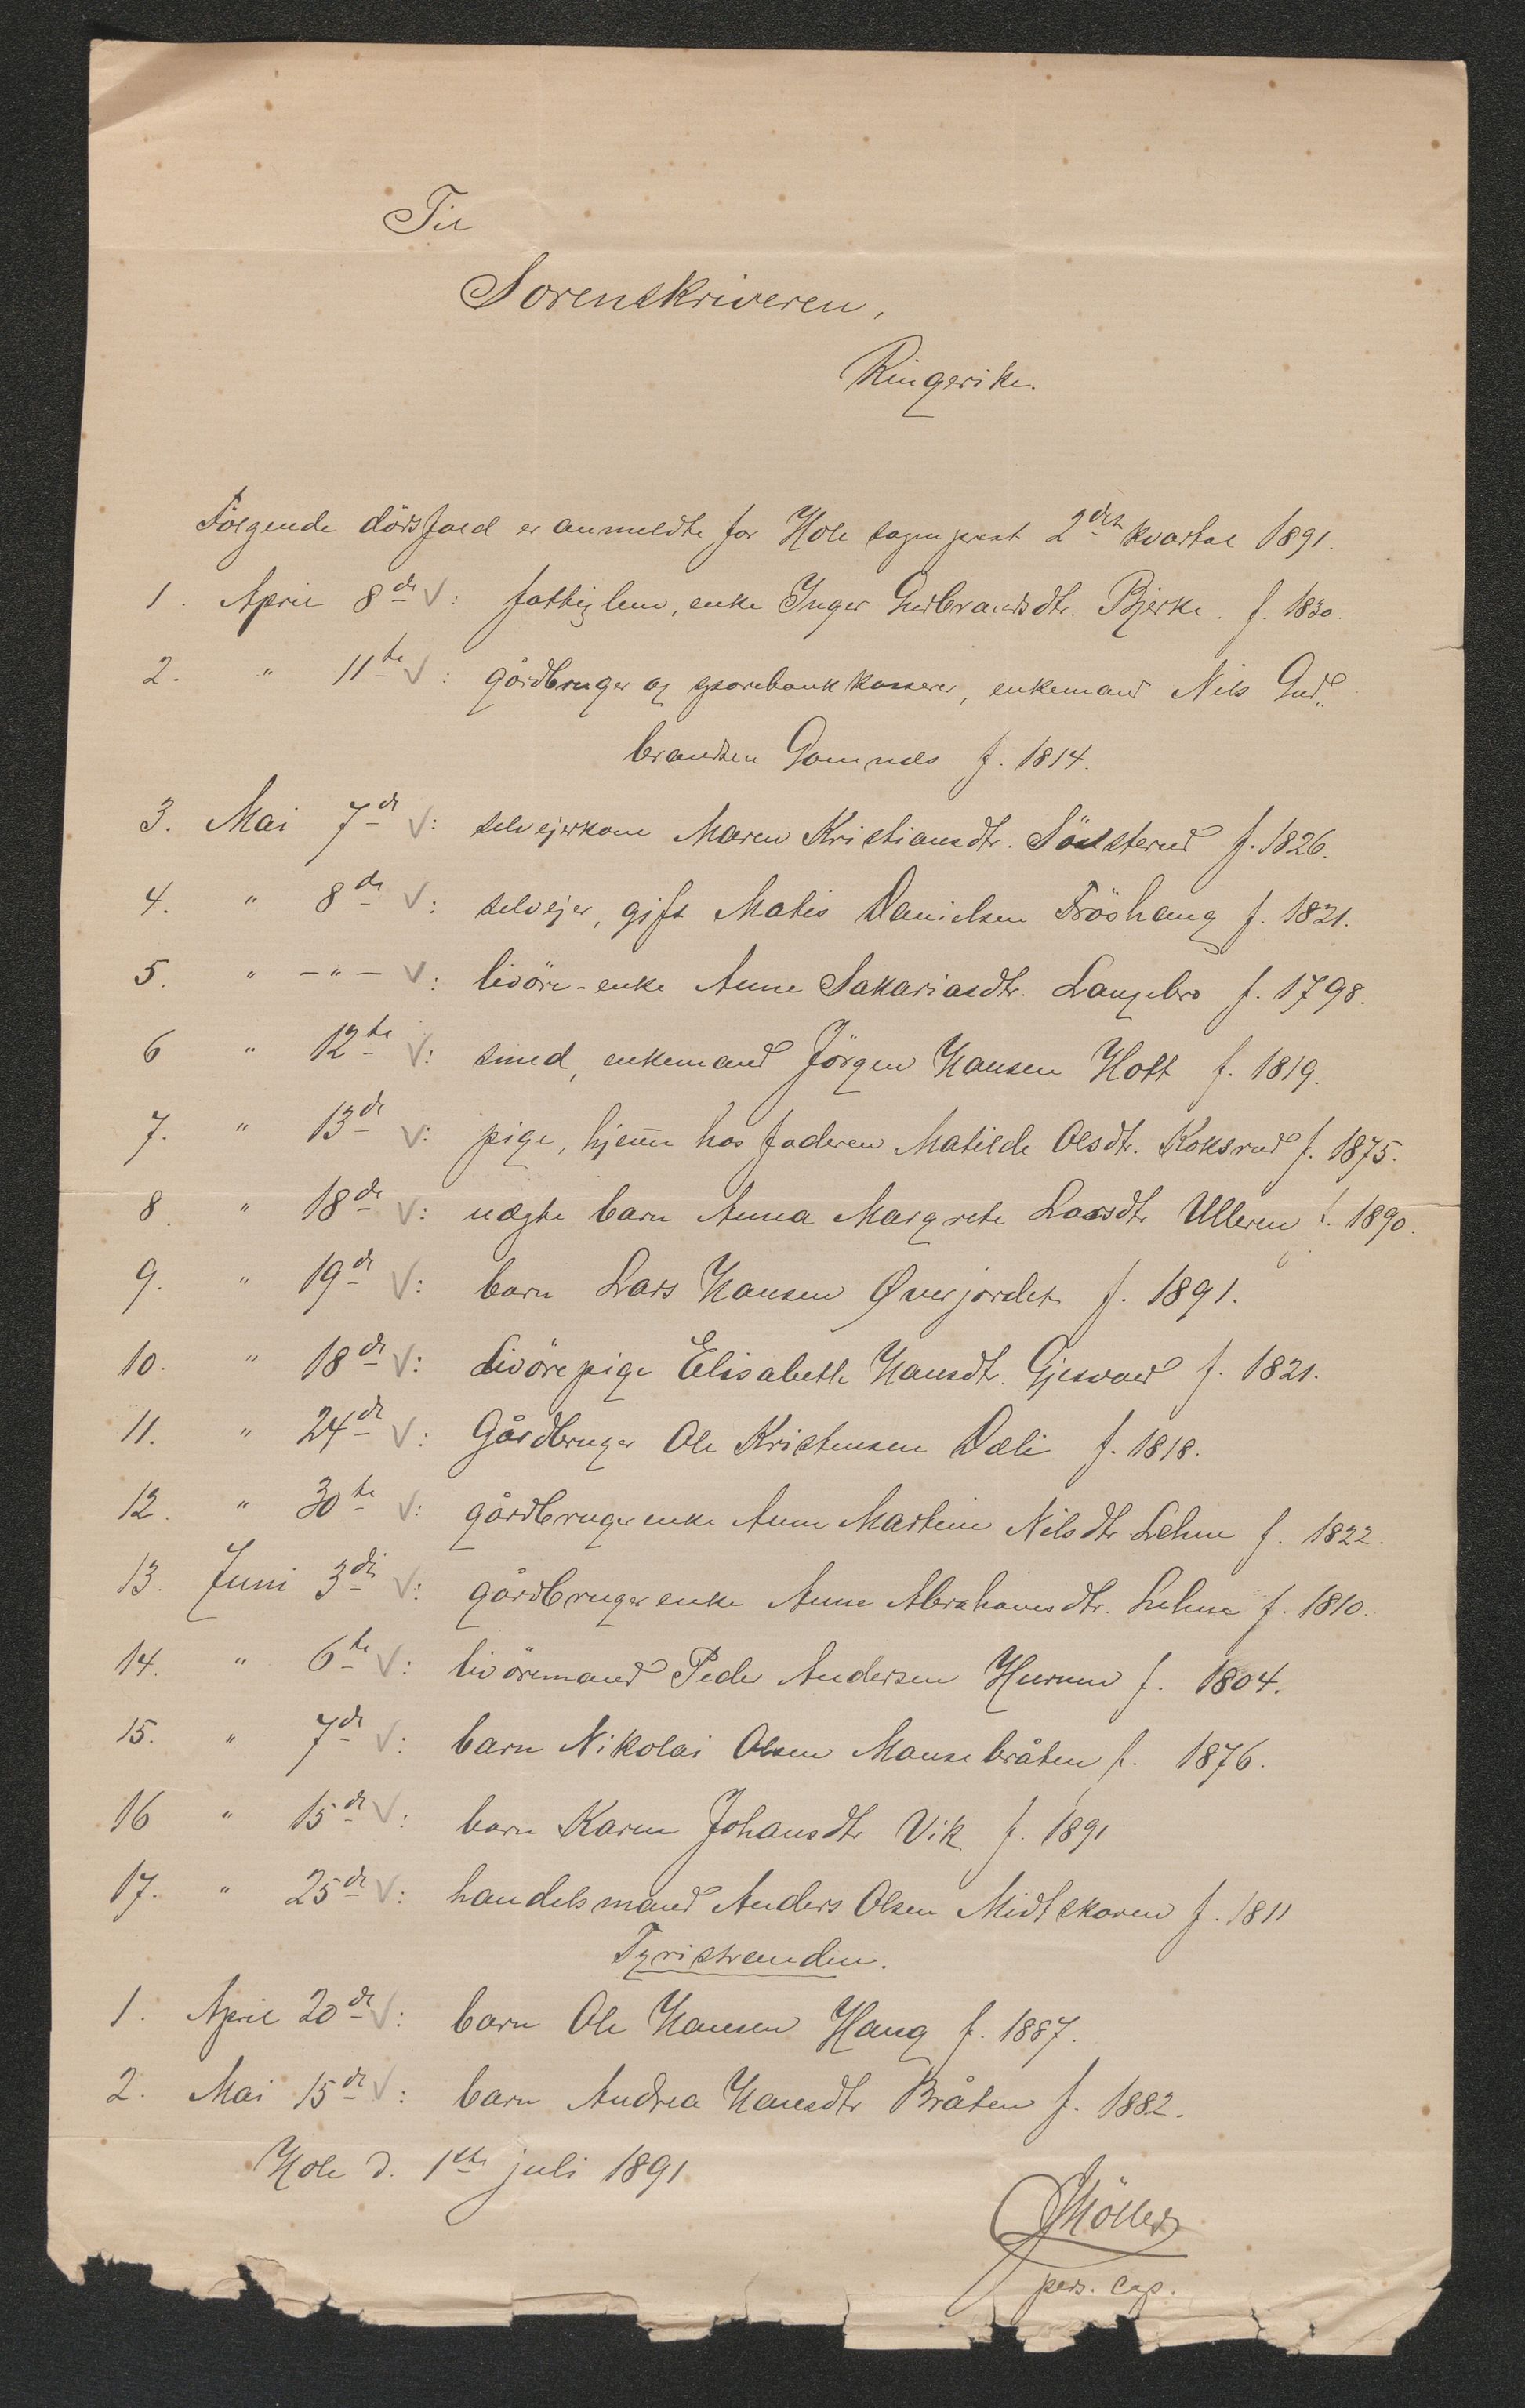 Til
Sorenskriveren,
Ringerike.
Følgende dödsfald er anmeldte for Hole sogneprest 2det kvartal 1891.
1. April 8de V: fattiglem, enke Inger Gudbrandsdtr. Bjerke. f. 1830.
2. " 11te V: gårdbruger og sparebankkasserer, enkemand Nils Gud„
brandsen Gomnæs f. 1814.
3. Mai 7de V: selvejerkone Maren Kristiansdtr. Sönsterud f. 1826.
4. " 8de V: selvejer, gift Matis Danielsen Fröshaug f. 1821.
5. " –"– V: livöre-enke Anne Sakariasdtr. Langebro f. 1798.
6 " 12te V: smed, enkemand Jörgen Hansen Hott f. 1819.
7. " 13de V: pige, hjemme hos faderen Matilde Olsdtr. Koksrud f. 1875.
8. " 18de V: uægte barn Anna Margrete Larsdtr Ulleren f. 1890.
9. " 19de V: barn Lars Hansen Øverjordet f. 1891.
10. " 18de V: Livörepige Elisabeth Hansdtr. Gjesvad f. 1821.
11. " 24de V: Gårdbruger Ole Kristensen Dæli f. 1818.
12. " 30te V: gårdbrugerenke Anne Martine Nilsdtr Lehne f. 1822.
13. Juni 3die V: gårdbrugerenke Anne Abrahamsdtr. Lehne f. 1810.
14. " 6te V: livöremand Peder Andersen Hurum f. 1804.
15. " 7de V: barn Nikolai Olsen Mausebråten f. 1876.
16 " 15de V: barn Karen Johansdtr Vik f. 1891
17. " 25de V: handelsmand Anders Olsen Midtskoven f. 1811
Tyristranden.
1. April 20de V: barn Ole Hansen Haug f. 1887.
2. Mai 15de V: barn Andrea Hansdtr Bråten f. 1882.
Hole d. 1ste juli 1891
Möller
pers. cap.